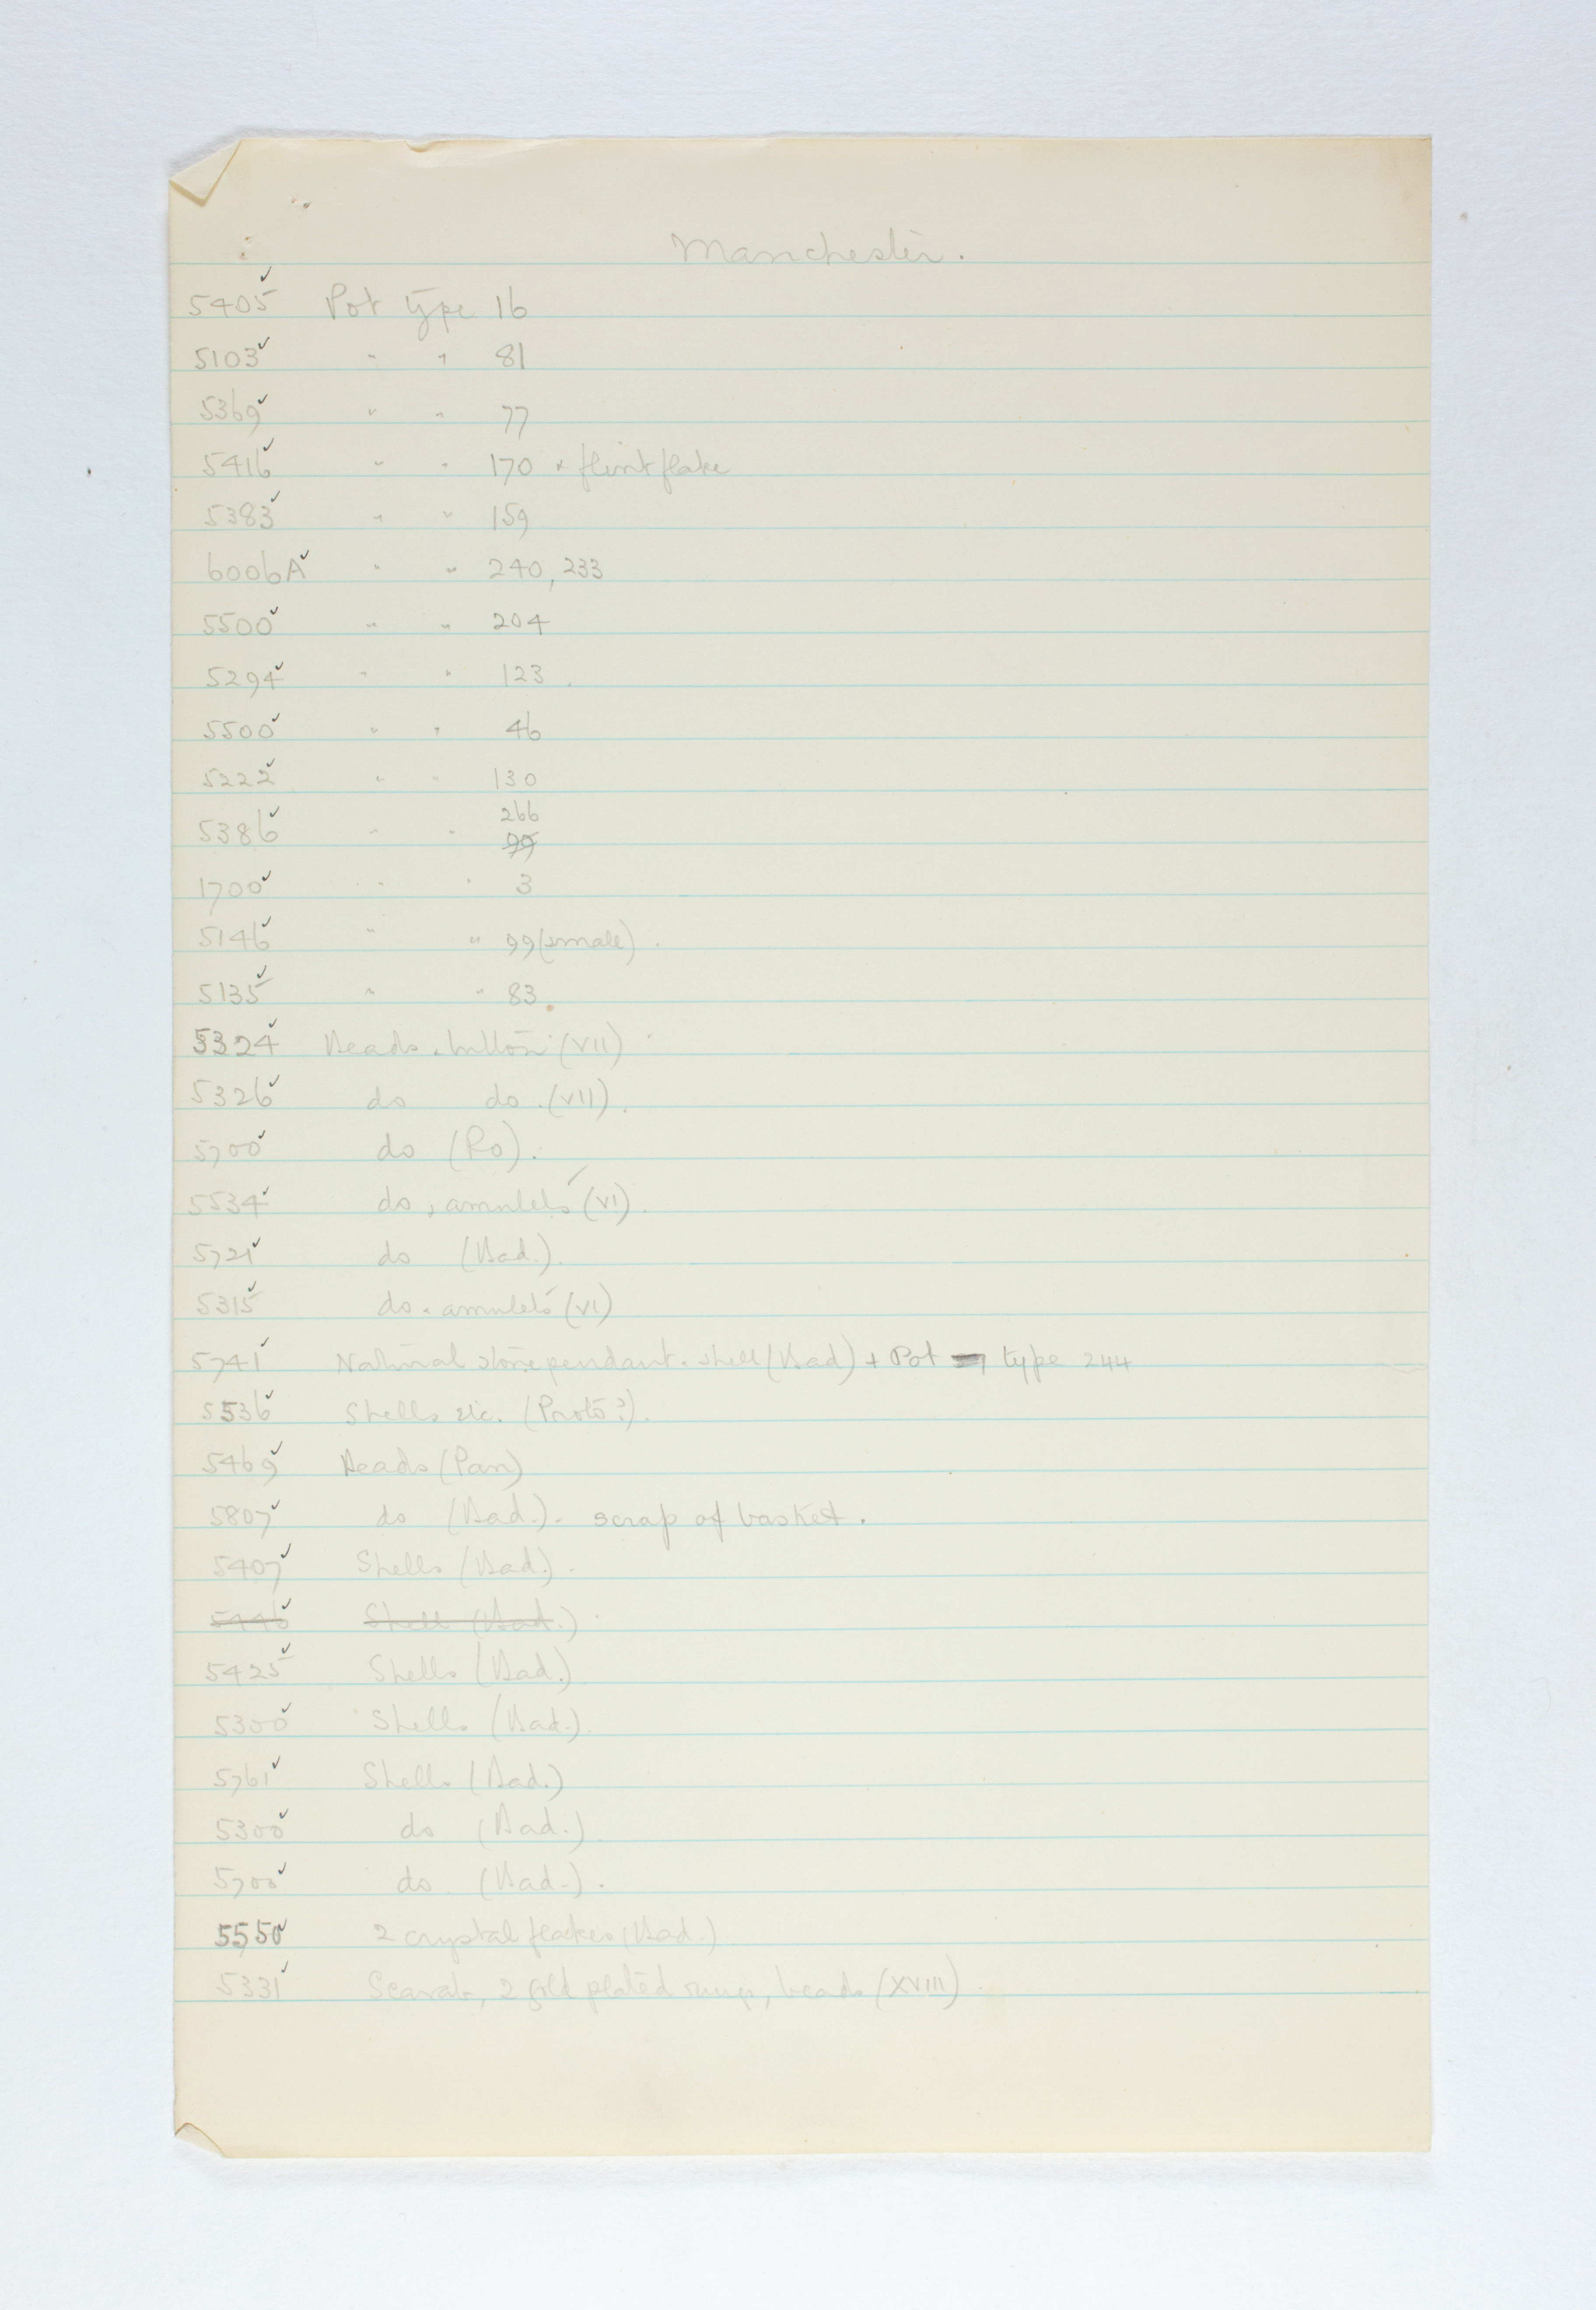 Manchester.
5405 ✓ Pot type 16
5103 ✓ " " 81
5369 ✓ " " 77
5416 ✓ " " 170 + flint flake
5383 ✓ " " 159
6006A ✓ " " 240, 233
5500 ✓ " " 204
5294 ✓ " " 123.
5500 ✓ " " 46
5222 ✓ " " 130
266
5386 ✓ " " 99
1700 ✓ " " 3
5146 ✓ " " 99 (small).
5135 ✓ " " 83.
5324 ✓ Beads, button (VII)
5326 ✓ do do. (VII).
5700 ✓ do (Ro).
5534 ✓ do, amulets (VI).
5721 ✓ do (Bad.).
5315 ✓ do. amulets (VI)
5741 ✓ Natural stone pendant. shell (Bad) + Pot type 244
5536 ✓ Shells etc. (Proto?).
5469 ✓ Beads (Pan)
5807 ✓ do (Bad.). scrap of basket.
5407 ✓ Shells (Bad.).
5446 ✓ Shell (Bad.)
5425 ✓ Shells (Bad.)
5300 ✓ Shells (Bad.).
5761 ✓ Shells (Bad.)
5300 ✓ do (Bad.).
5700 ✓ do (Bad.).
5550 ✓ 2 crystal flakes (Bad.)
5331 ✓ Scarab, 2 gold plated rings, beads (XVIII).